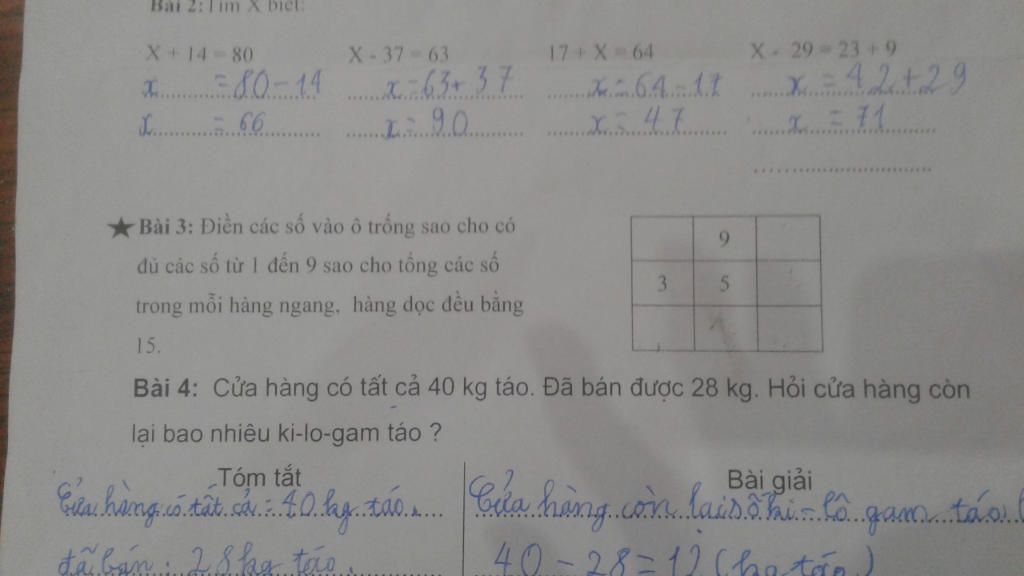 Bài 2: Tìm X biết:
X + 14 = 80 X - 37 = 63 17 + X = 64 X - 29 = 23 + 9
x = 80 - 14 x = 63 + 37 x = 64 - 17 x = 42 + 29
x = 66 x = 90 x = 47 x = 71
★ Bài 3: Điền các số vào ô trống sao cho có
đủ các số từ 1 đến 9 sao cho tổng các số
trong mỗi hàng ngang, hàng dọc đều bằng
15.
9
3 5
1
Bài 4: Cửa hàng có tất cả 40 kg táo. Đã bán được 28 kg. Hỏi cửa hàng còn
lại bao nhiêu ki-lo-gam táo ?
Tóm tắt Bài giải
Cửa hàng có tất cả = 40 kg táo. Cửa hàng còn lại số ki - lô gam táo
đã bán : 28 kg táo. 40 - 28 = 12 (kg táo)